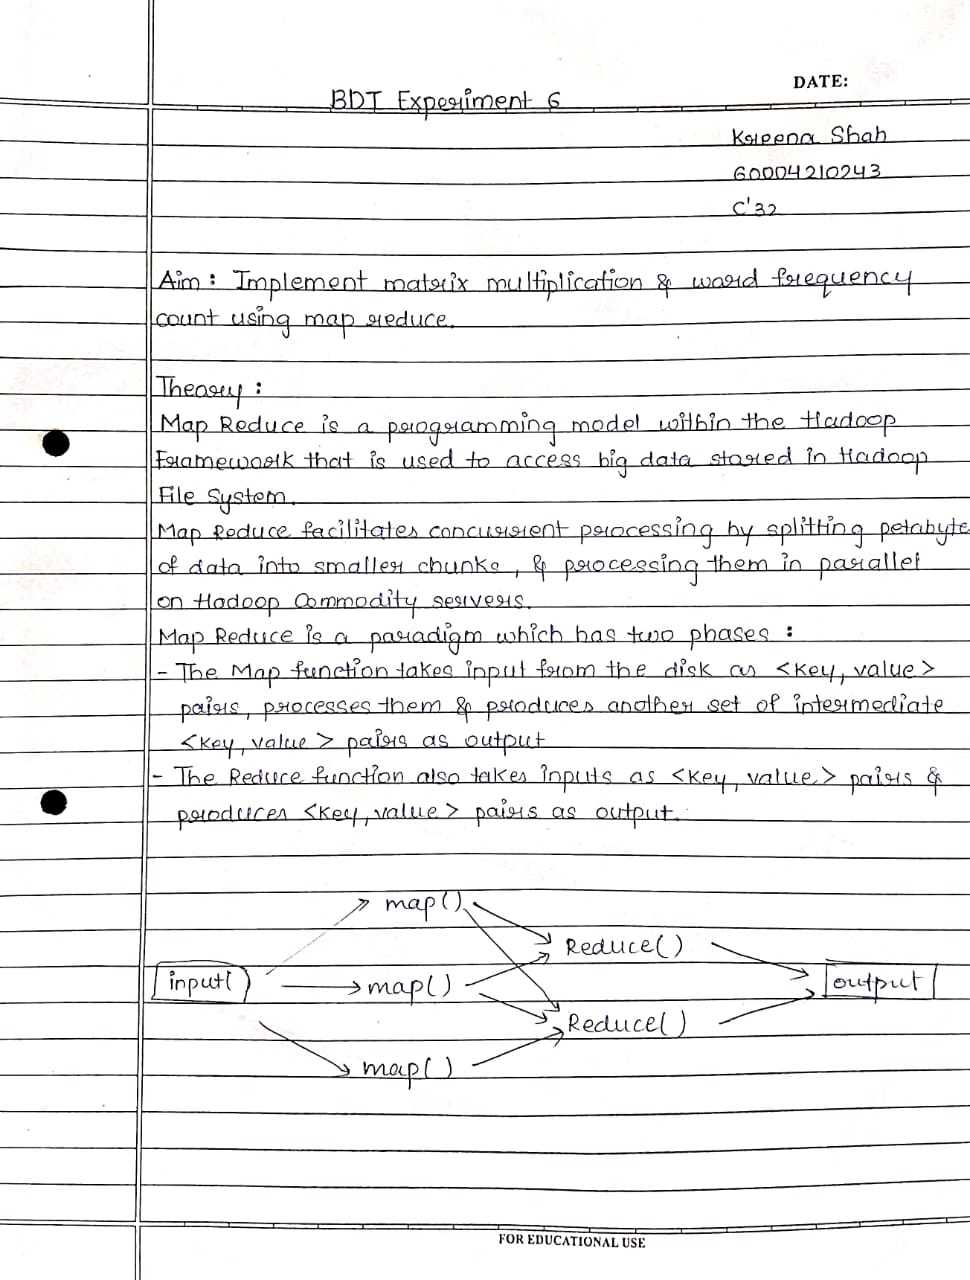 DATE:
BDT Experiment 6
Kreena Shah
60004210243
C'32
Aim : Implement matrix multiplication & word frequency
count using map reduce.
Theory :
Map Reduce is a programming model within the Hadoop
Framework that is used to access big data stored in Hadoop
File System.
Map Reduce facilitates concurrent processing by splitting petabyte
of data into smaller chunks, & processing them in parallel
on Hadoop Commodity servers.
Map Reduce is a paradigm which has two phases :
- The Map function takes input from the disk as <key, value>
pairs, processes them & produces another set of intermediate
<key, value> pairs as output
- The Reduce function also takes inputs as <key, value> pairs &
produces <key, value> pairs as output.
map()
Reduce()
input()
map()
output
Reduce()
map()
FOR EDUCATIONAL USE